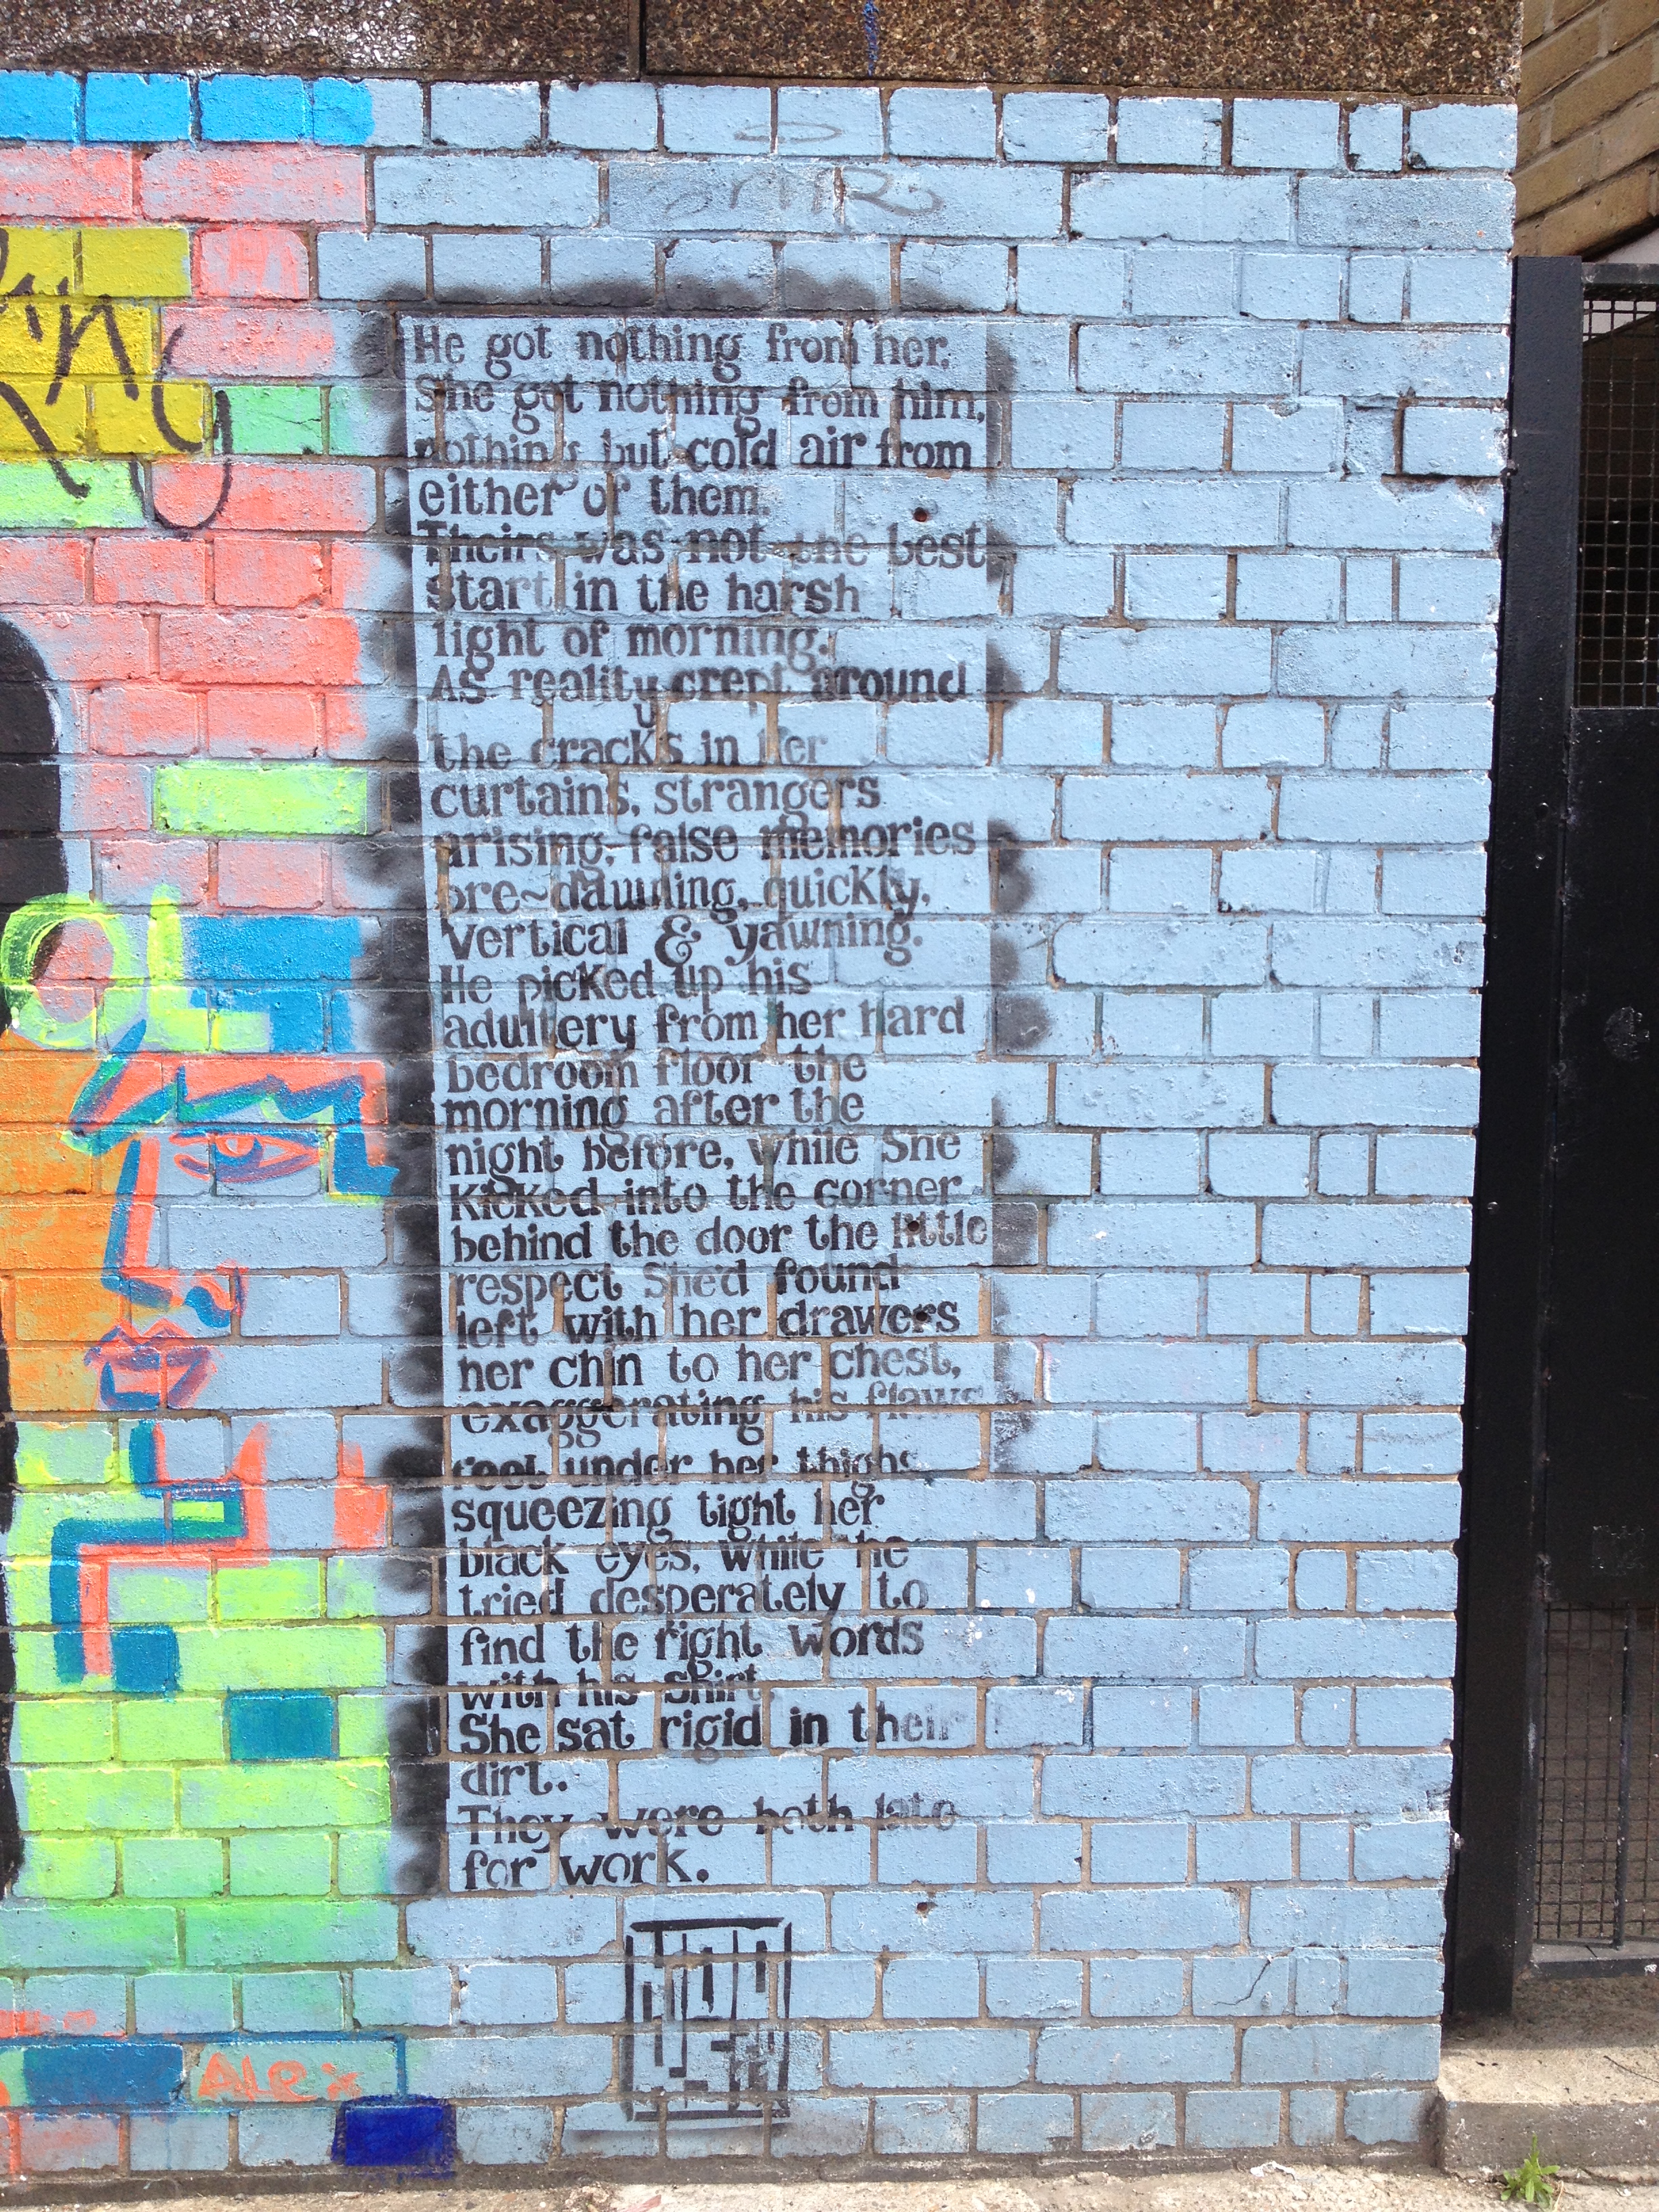 He got nothing from her.
She got nothing from him,
nothing but cold air from
either of them.
Theirs was not the best
start in the harsh
light of morning.
As reality crept around
the cracks in her
curtains, strangers
arising, false memories
pre~dawning, quickly,
vertical & yawning.
He picked up his
adultery from her hard
bedroom floor the
morning after the
night before, while She
Kicked into the corner
behind the door the little
respect She'd found
left with her drawers
her chin to her chest,
exaggerating his flaws
feet under her thighs
squeezing tight her
black eyes, while he
tried desperately to
find the right words
with his shirt.
She sat rigid in their
dirt.
They were both late
for work.
ALEX